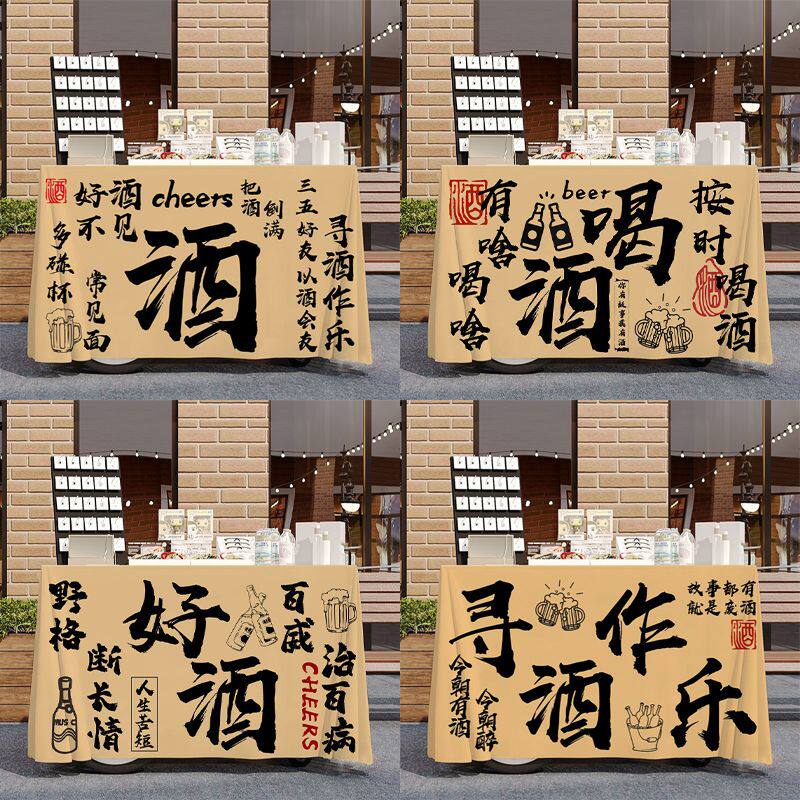 酒
好酒
不见
多碰杯
常见面
cheers
酒
把酒
倒满
三五好友以酒会友
寻酒作乐
酒
有啥
喝啥
beer
喝酒
你有故事我有酒
按时
喝酒
酒
野格
断长情
好酒
人生苦短
百威
治百病
CHEERS
寻酒作乐
今朝有酒
今朝醉
故事都有
就是废酒
酒